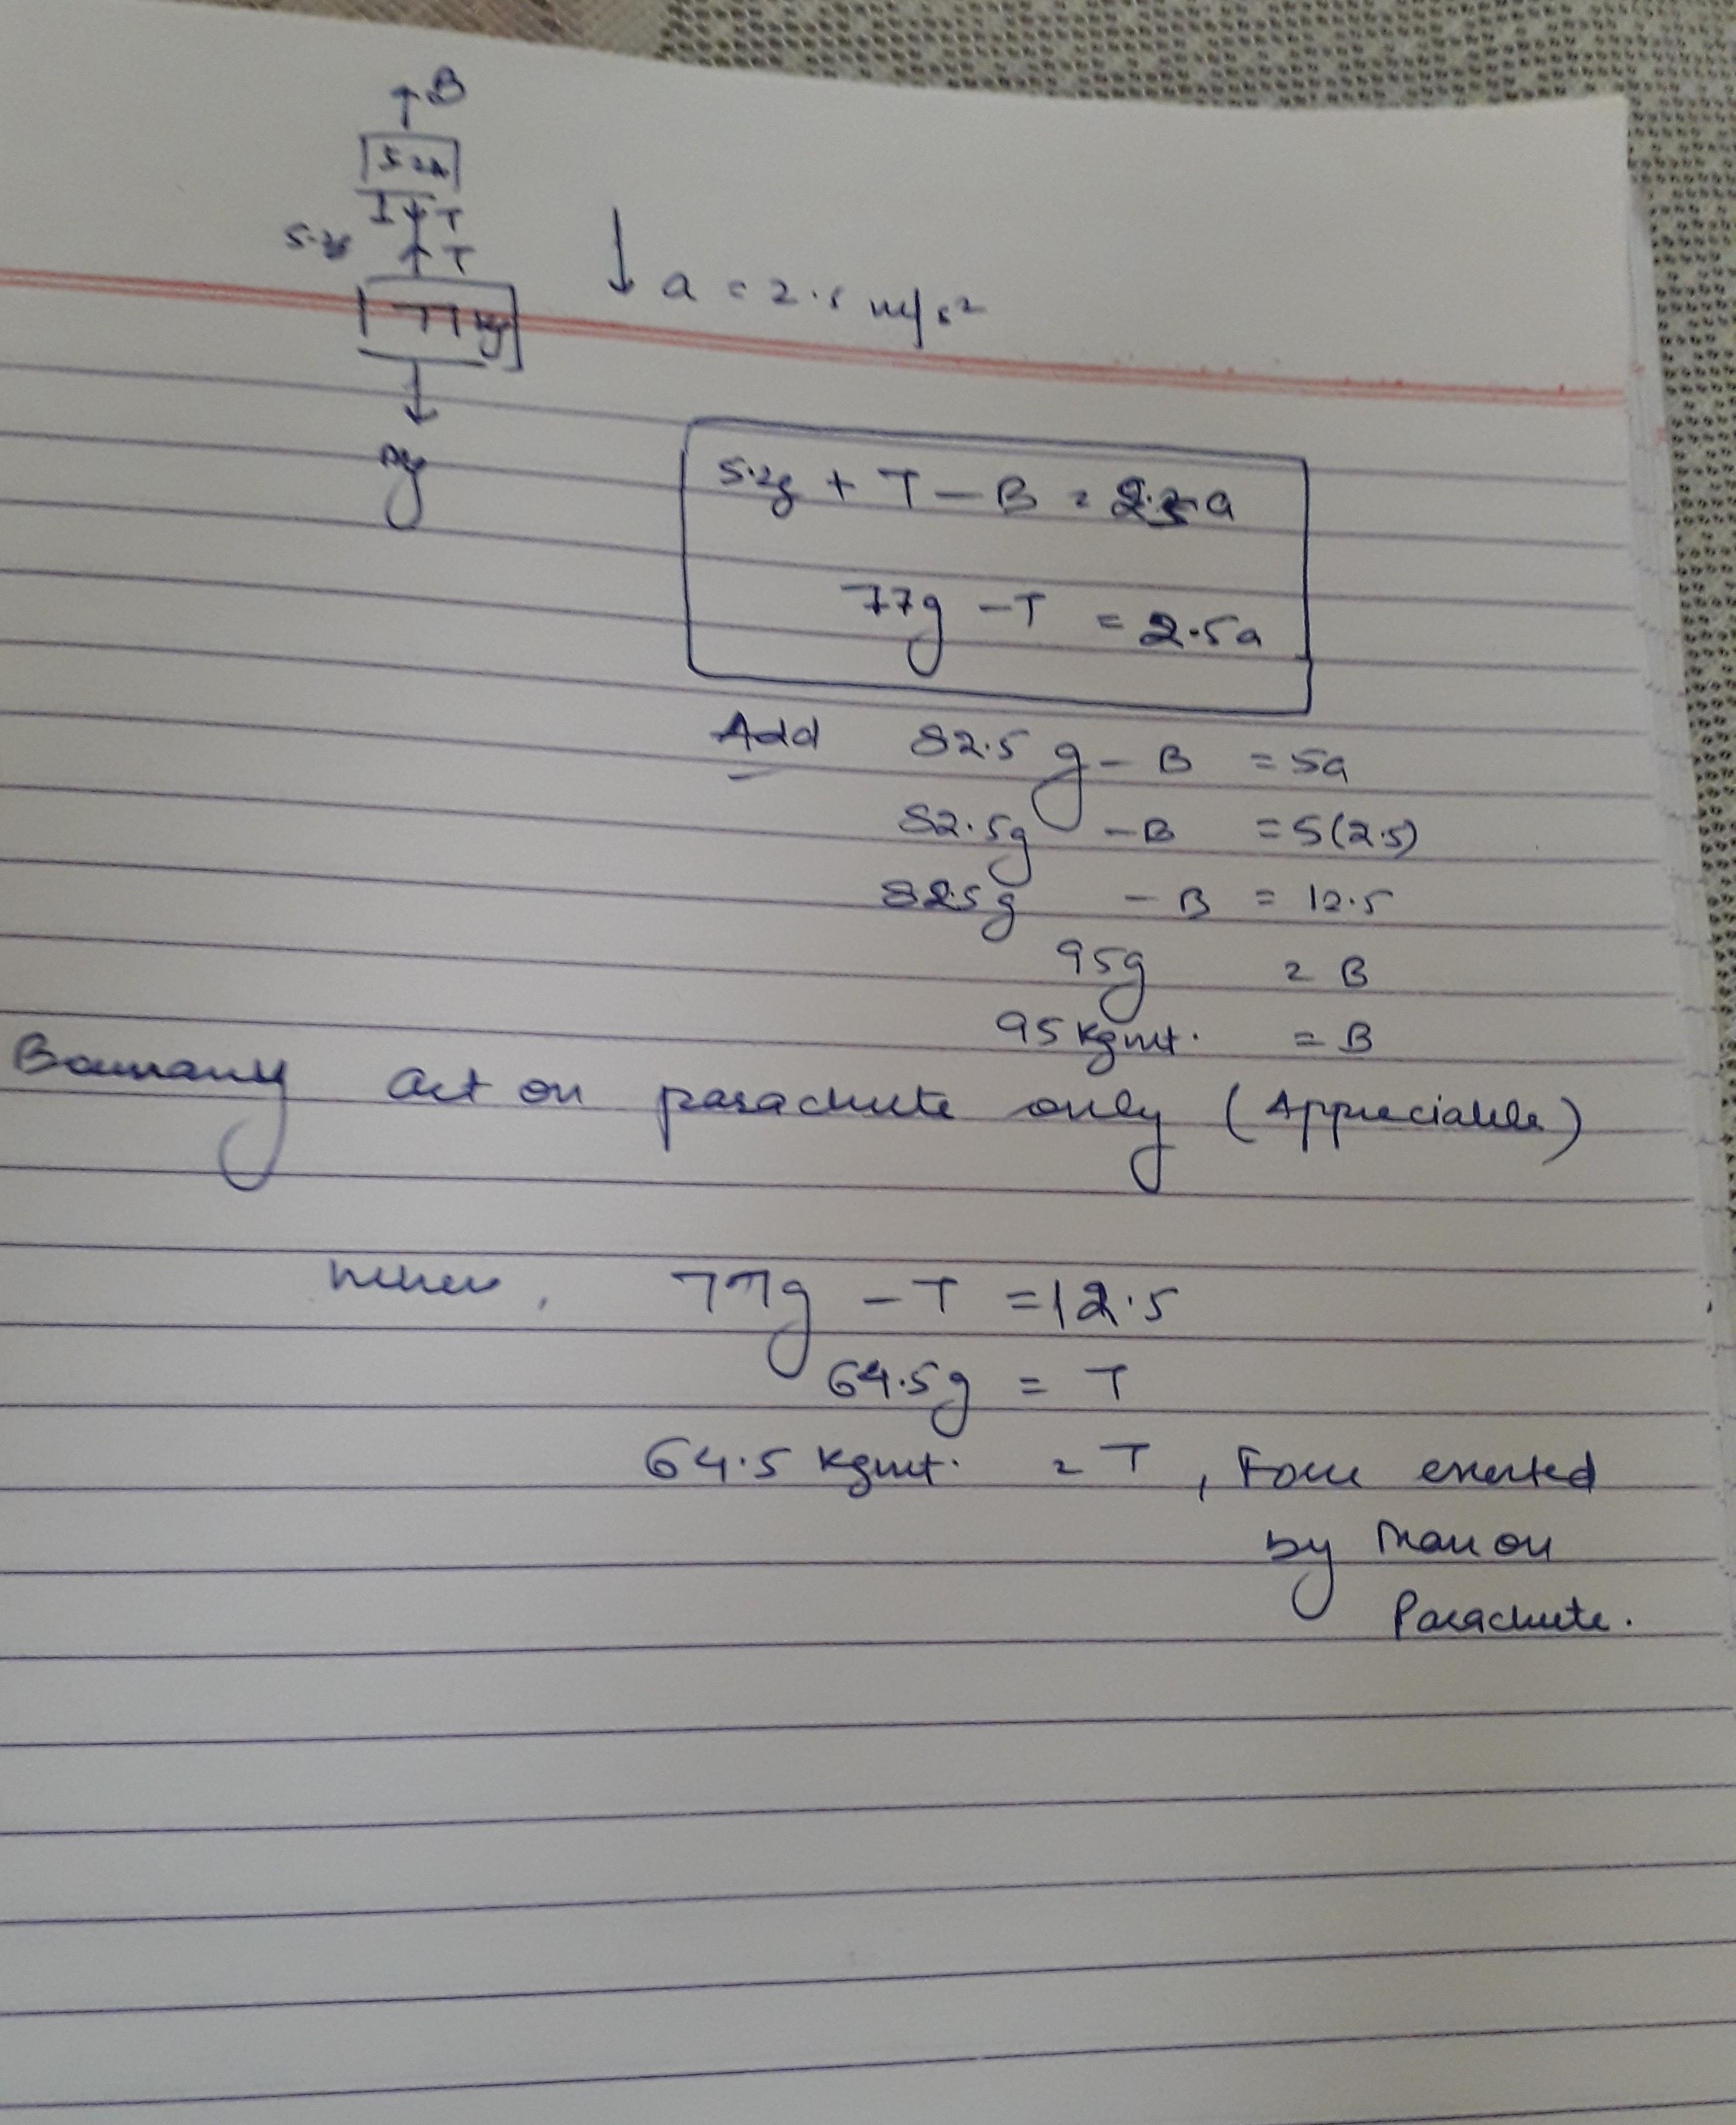 B
5.2k
T
T
77 kg
a = 2.5 m/s²
5.2g + T - B = 2.5a
77g - T = 2.5a
Add 82.5g - B = 5a
82.5g - B = 5(2.5)
82.5g - B = 12.5
95g = B
95 kgwt. = B
Bouyancy act on parachute only (Appreciable)
77g - T = 12.5
64.5g = T
64.5 kgwt. = T, Force exerted
by man on
Parachute.